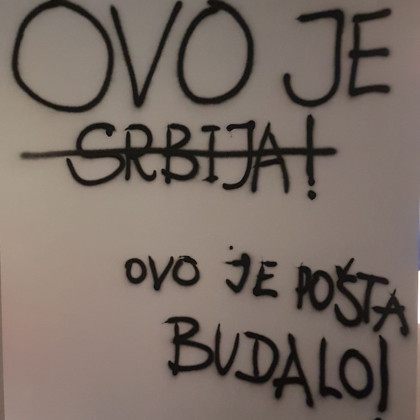 OVO JE
SRBIJA!
OVO JE POŠTA
BUDALO!